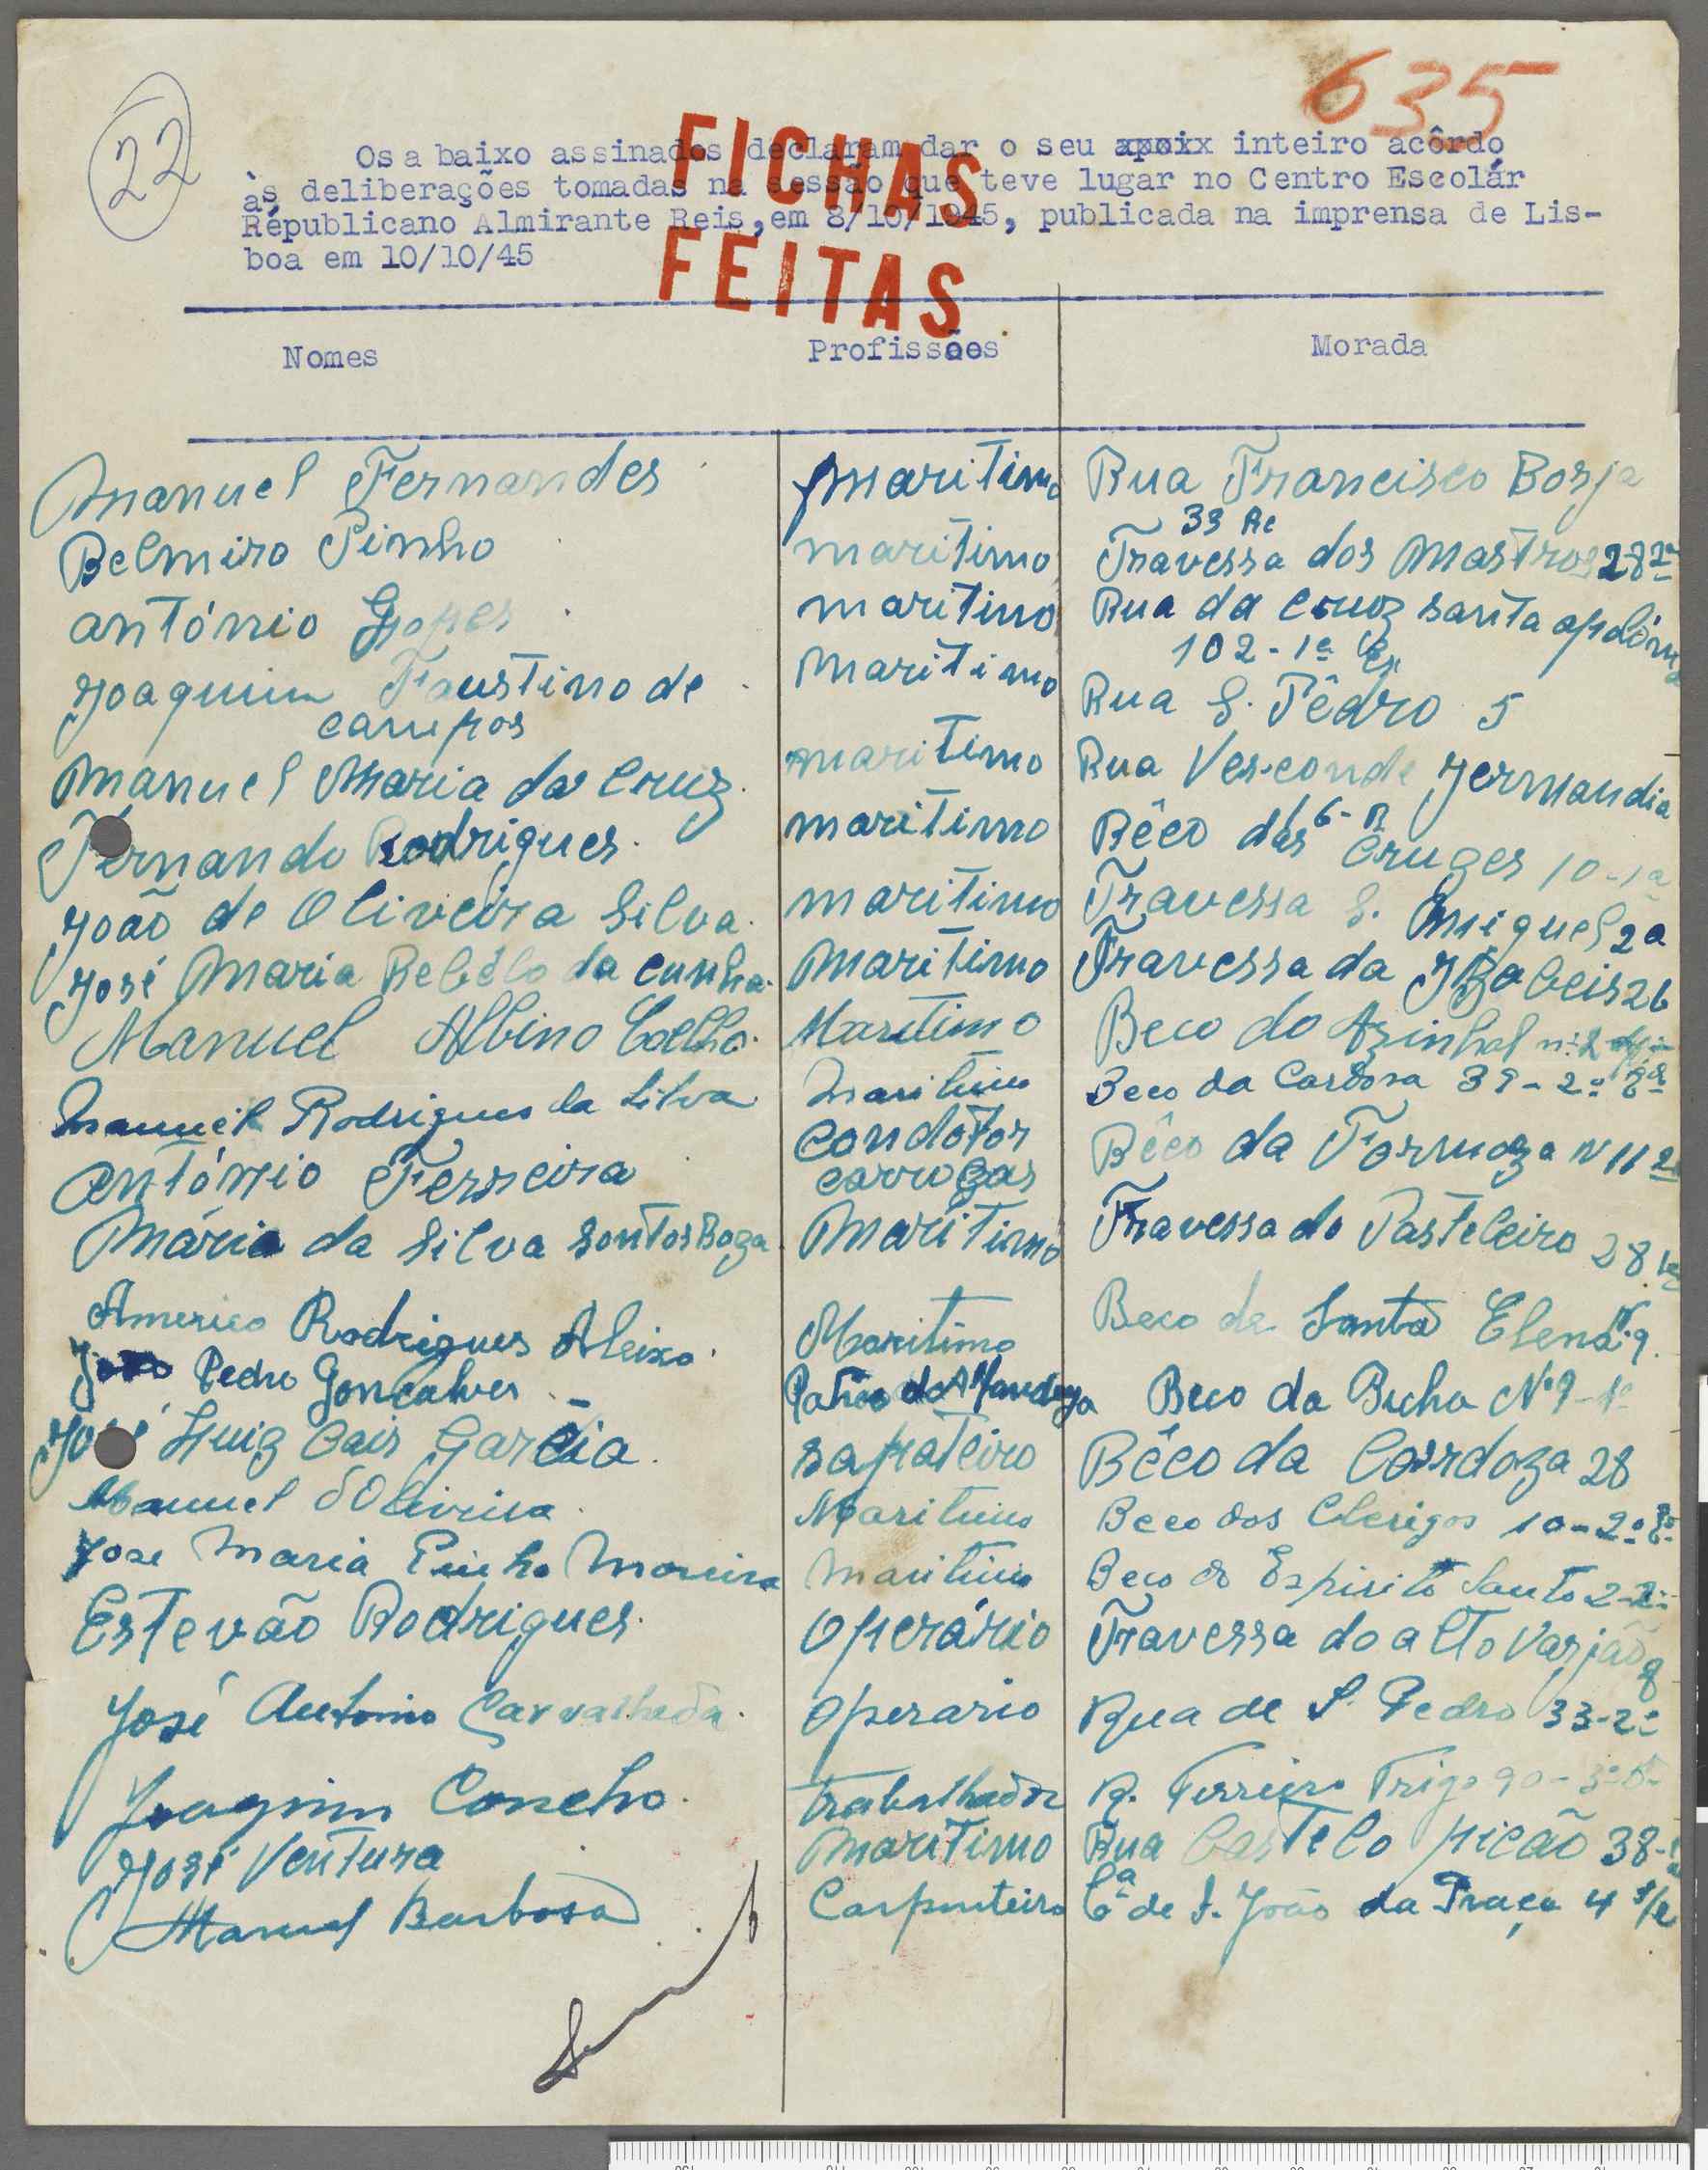 22
635
Os a baixo assinados declaram dar o seu xpoix inteiro acôrdo
às deliberações tomadas na sessão que teve lugar no Centro Escolár
Républicano Almirante Reis, em 8/10/1945, publicada na imprensa de Lis-
boa em 10/10/45
FICHAS
FEITAS
Nomes Profissões Morada
Manuel Fernandes maritimo Rua Francisco Borja
33 Rc
Belmiro Pinho maritimo Travessa dos Mastros 28 2º
António Lopes maritimo Rua da Cruz santa apolónia
102-1º
Joaquim Faustino de maritimo Rua S. Pêdro 5
campos
Manuel Maria da Cruz maritimo Rua Vesconde Jermandia
16-R
Fernando Rodrigues maritimo Bêco das Cruzes 10-1º
João de Oliveira Silva maritimo Travessa S. Miguel 2a
José Maria Rebêlo da cunha maritimo Travessa da Izabeis 26
Manuel Albino Coelho Maritimo Beco do Azinhal nº 2
Manuel Rodrigues da Silva Maritimo Beco da Cardosa 39-2º
António Ferreira Condotor Bêco da Formoza N 11 2º
carroças
Mário da Silva Santos Boga Maritimo Travessa do Pasteleiro 28
Americo Rodrigues Aleixo Maritimo Beco de Santa Elena 9
João Pedro Gonçalves Beco da Bicha Nº 9-1º
José Luiz Cais Garcia sapateiro Bêco da Cardoza 28
Manuel d'Oliveira Maritimo Beco dos Clerigos 10-2º
José Maria Pinho Moreira Maritimo Beco do Espirito Santo 2-2º
Estevão Rodrigues Operário Travessa do alto Varjão 8
José Antonio Carvalheda operario Rua de S. Pedro 33-2º
Joaquim Concho trabalhador R. Terreiro Trigo 90-3º
José Ventura Maritimo Rua Castelo picão 38
Manuel Barbosa Carpinteiro Cª de S. João da Praça 4